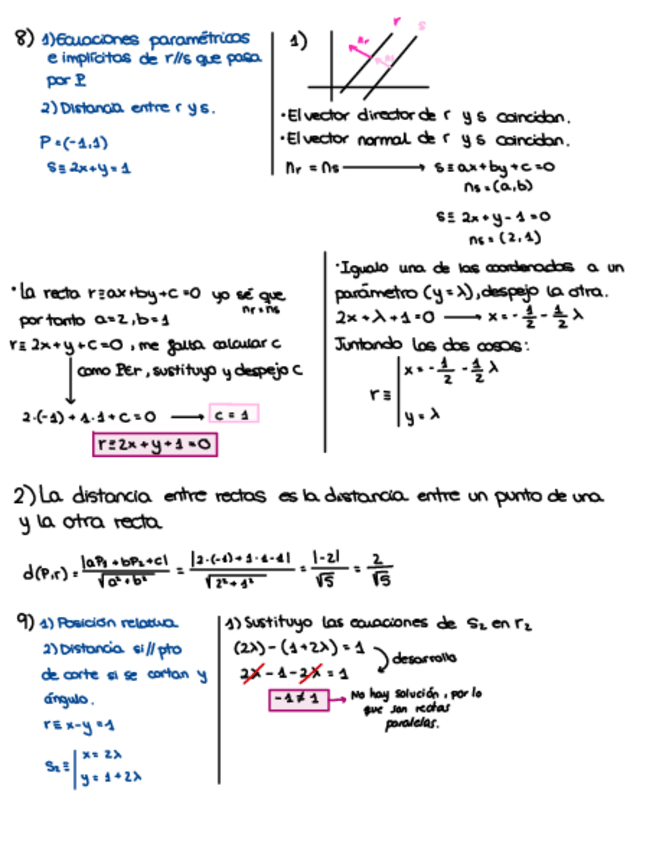 8) 1) Ecuaciones paramétricas
e implícitas de r//s que pasa
por P
2) Distancia entre r y s.
P=(-1,1)
s≡ 2x+y=1
1)
r
s
nr
ns
·El vector director de r y s coinciden.
·El vector normal de r y s coinciden.
nr = ns → s≡ax+by+c=0
ns=(a,b)
s≡ 2x+y-1=0
ns=(2,1)
·La recta r≡ax+by+c=0 yo sé que
nr=ns
por tanto a=2, b=1
r≡ 2x+y+c=0, me falta calcular c
como P∈r, sustituyo y despejo c
2·(-1)+1·1+c=0 → c=1
r≡2x+y+1=0
·Igualo una de las coordenadas a un
parámetro (y=λ), despejo la otra.
2x+λ+1=0 → x=-1/2-1/2λ
Juntando las dos cosas:
r≡ | x=-1/2-1/2λ
y=λ
2) La distancia entre rectas es la distancia entre un punto de una
y la otra recta
d(P,r)= |aP₁+bP₂+c|/√a²+b² = |2·(-1)+1·1-1|/√2²+1² = |-2|/√5 = 2/√5
9) 1) Posición relativa
2) Distancia si // pto
de corte si se cortan y
ángulo.
r≡ x-y=1
s₂≡ | x=2λ
y=1+2λ
1) Sustituyo las ecuaciones de s₂ en r₂
(2λ)-(1+2λ)=1
desarrollo
2λ-1-2λ=1
-1≠1 → No hay solución, por lo
que son rectas
paralelas.